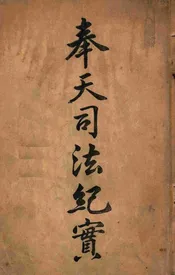 奉天司法紀實